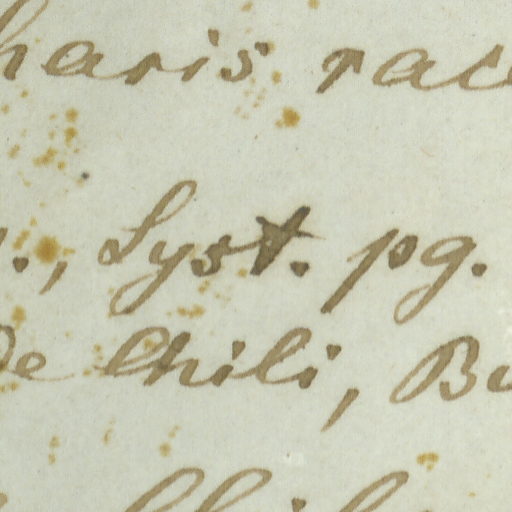 haris race
., Syst. pg.
de Chili, Bu